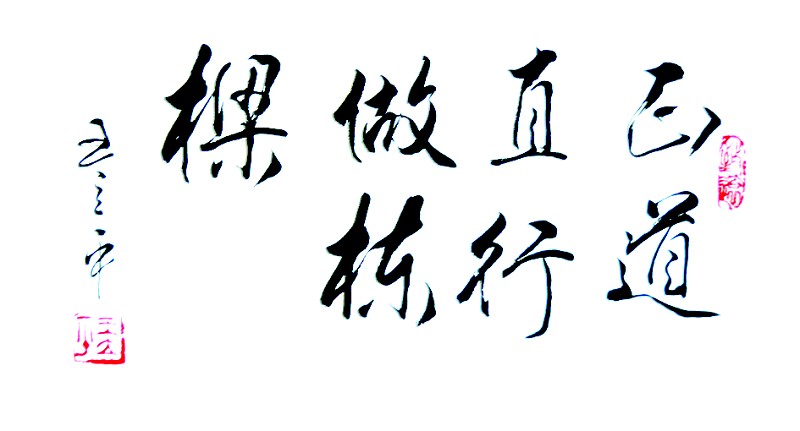 正道
直行
做栋
樑